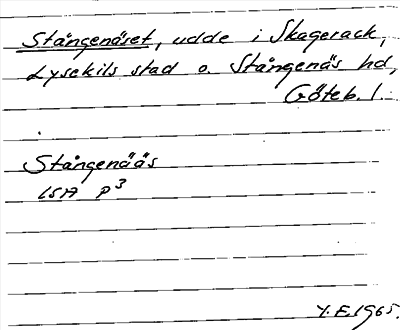 Stångenäset, udde i Skagerack,
Lysekils stad o. Stångenäs hd,
Göteb. l.
Stångenääs
LSA P3
Y. E. 1965.